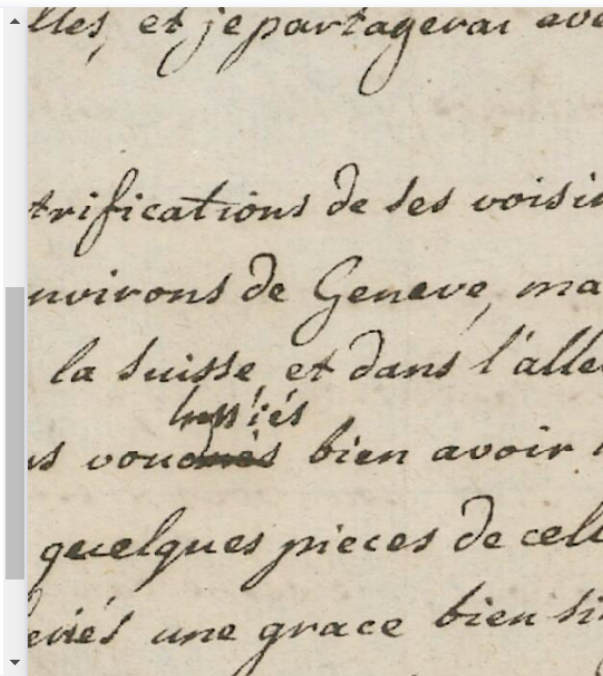 lles, et je partagerai ave
trifications de ses voisin
nvirons de Geneve, ma
la Suisse, et dans l'alle
bien avoir
quelques pieces de cell
une grace bien si